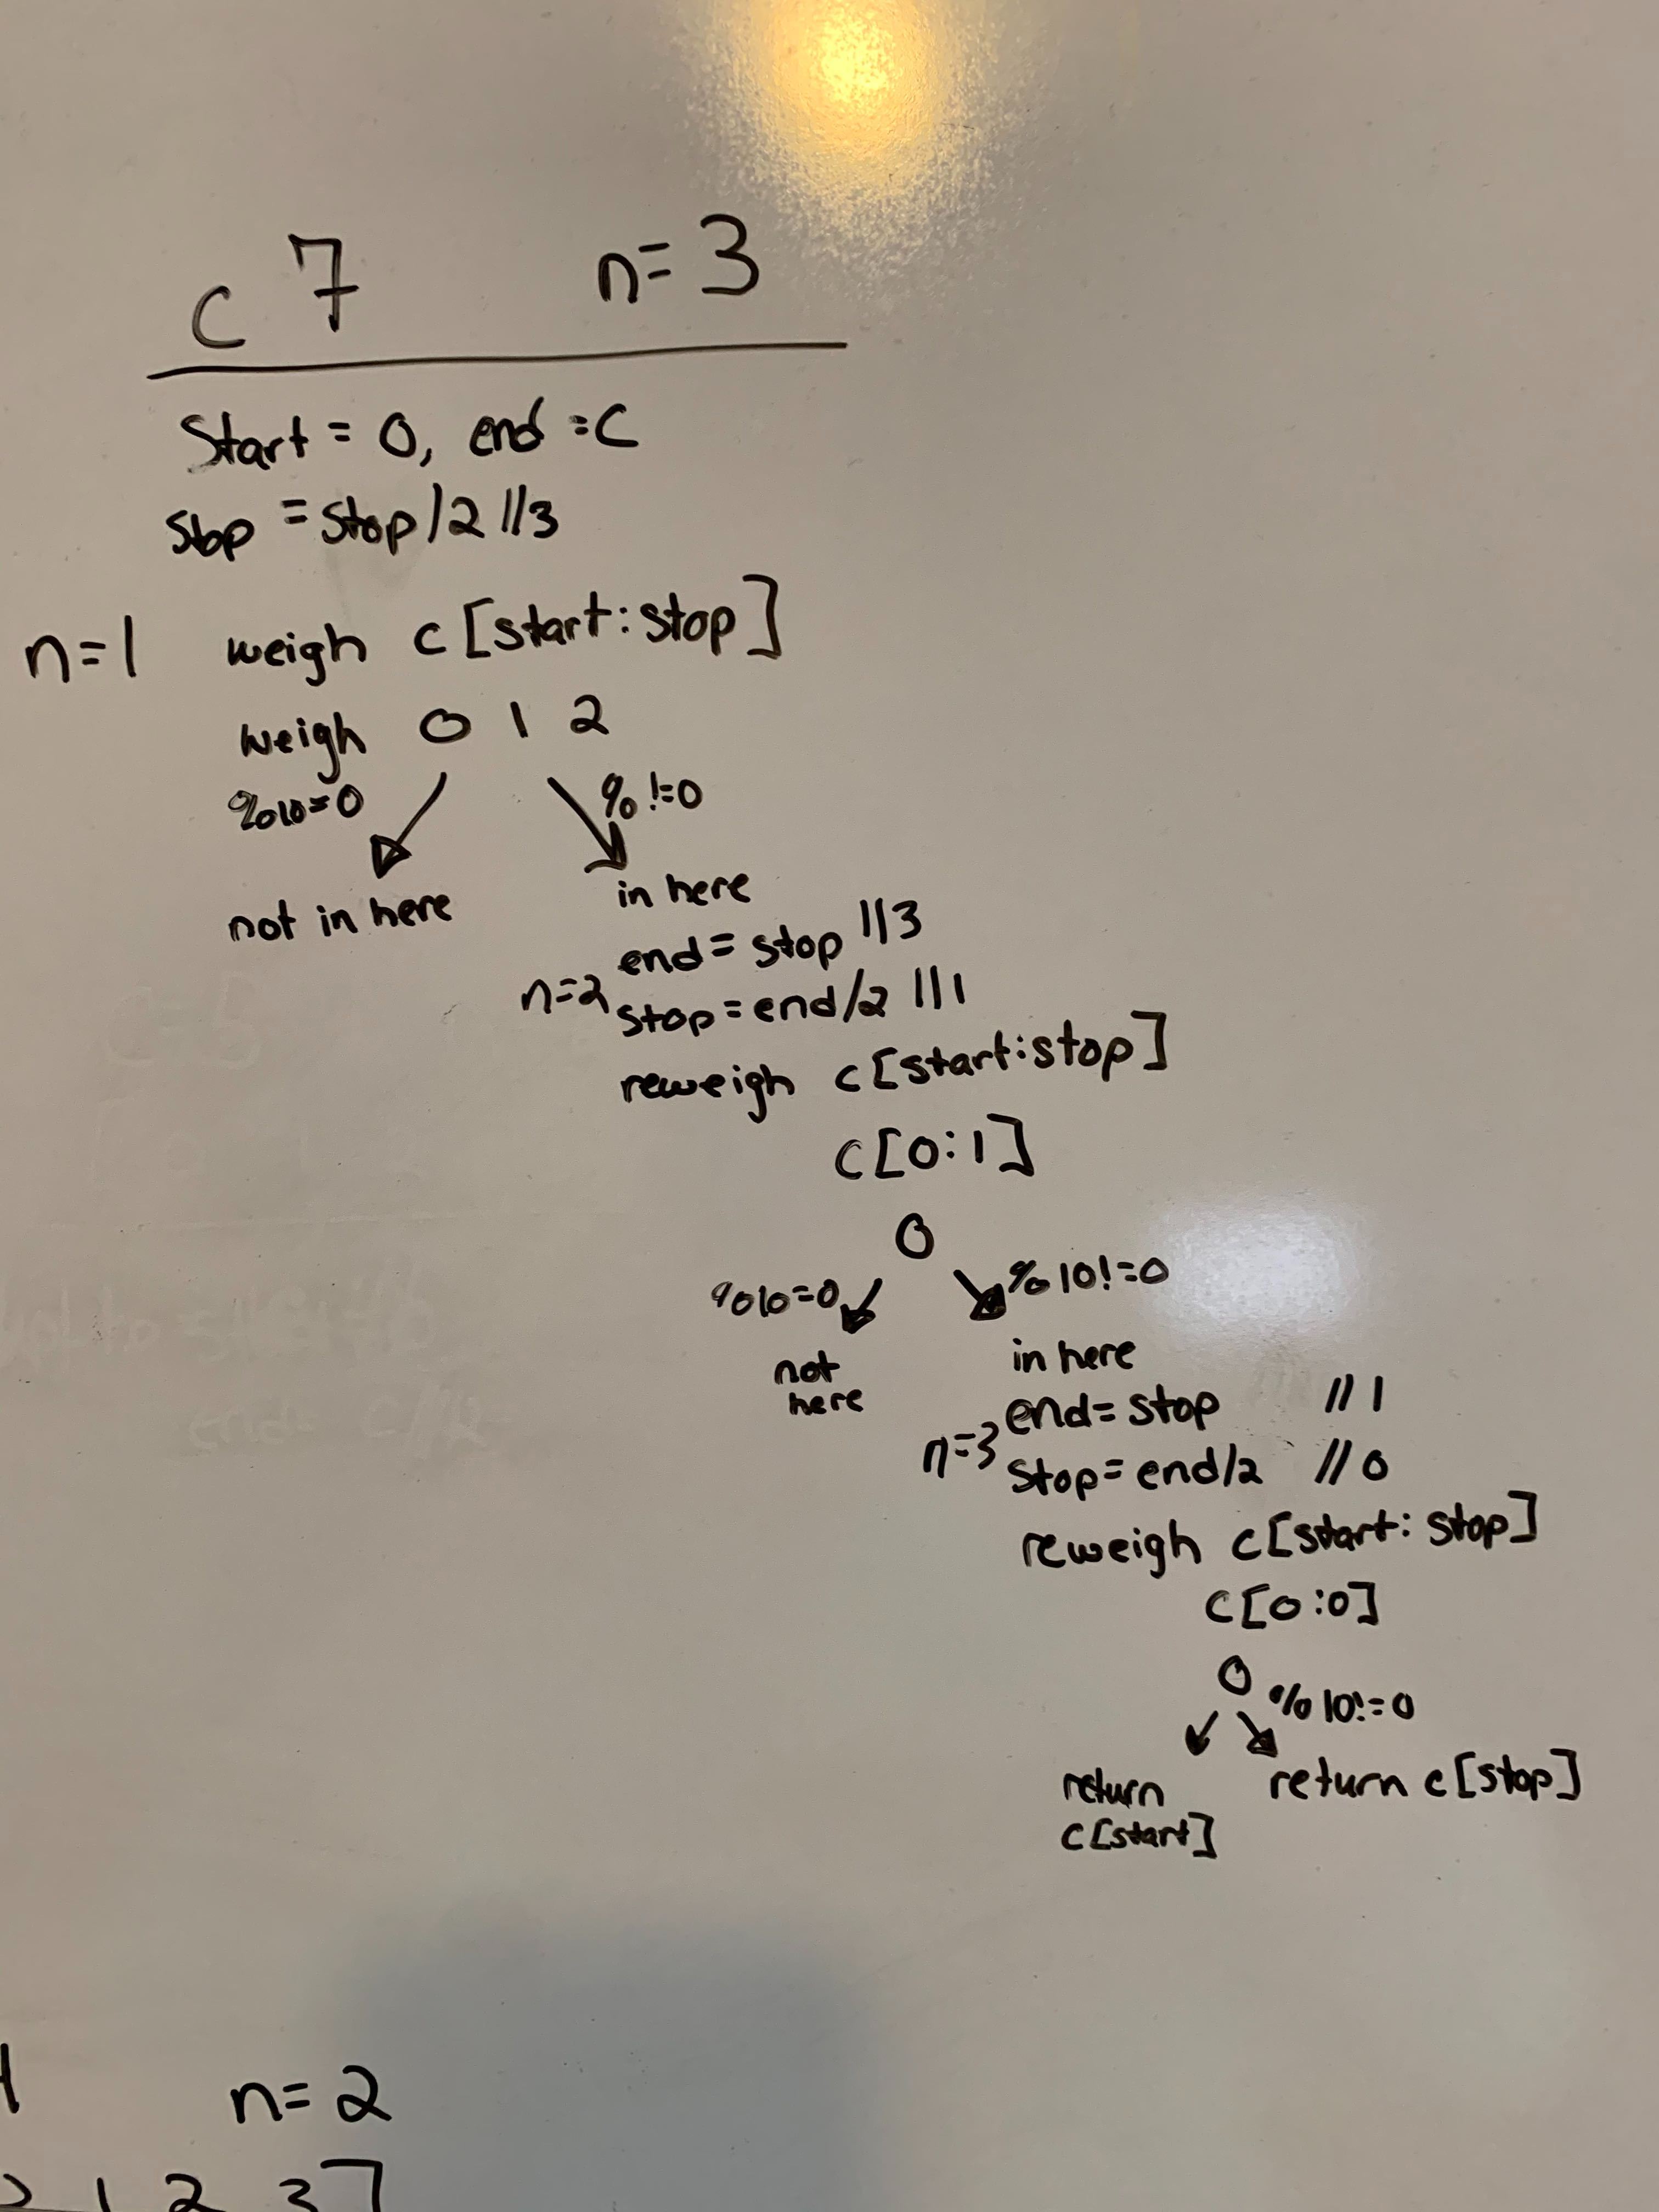 c 7 n=3
Start = 0, end = C
stop = stop/2 //3
n=1 weigh c[start:stop]
weigh 0 1 2
%10=0 % !=0
not in here
in here
end= stop //3
n=2 stop=end/2 //1
reweigh c[start:stop]
c[0:1]
0
%10=0 %10!=0
not
here
in here
end= stop //1
n=3 stop= end/2 //0
reweigh c[start: stop]
c[0:0]
0
%10!=0
return
c[start]
return c[stop]
n=2
1 2 3]